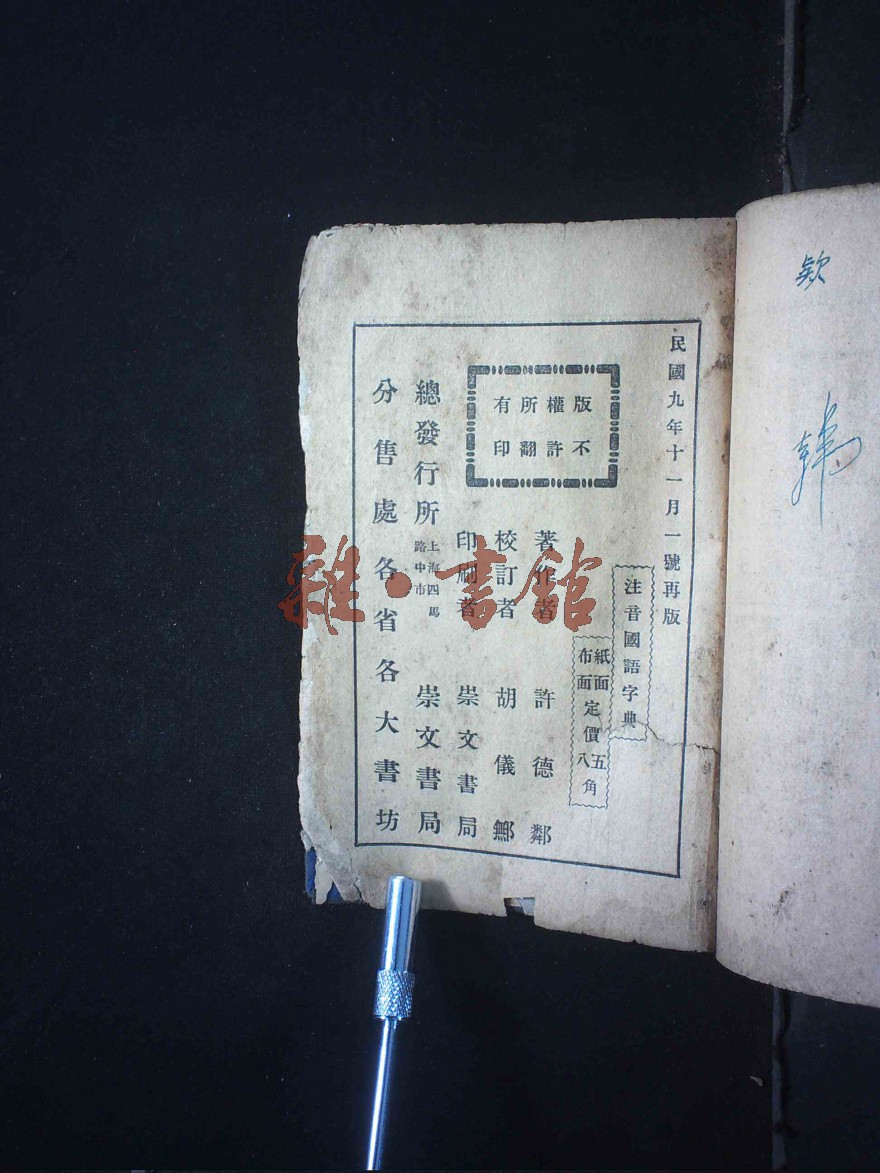 民國九年十一月一號再版
注音國語字典
紙面定價五角
布面定價八角
版權所有
不許翻印
著作者 許德鄰
校訂者 胡儀鄦
印刷者 崇文書局
總發行所 上海四馬路中市 崇文書局
分售處各省各大書坊
雜·書館
欵